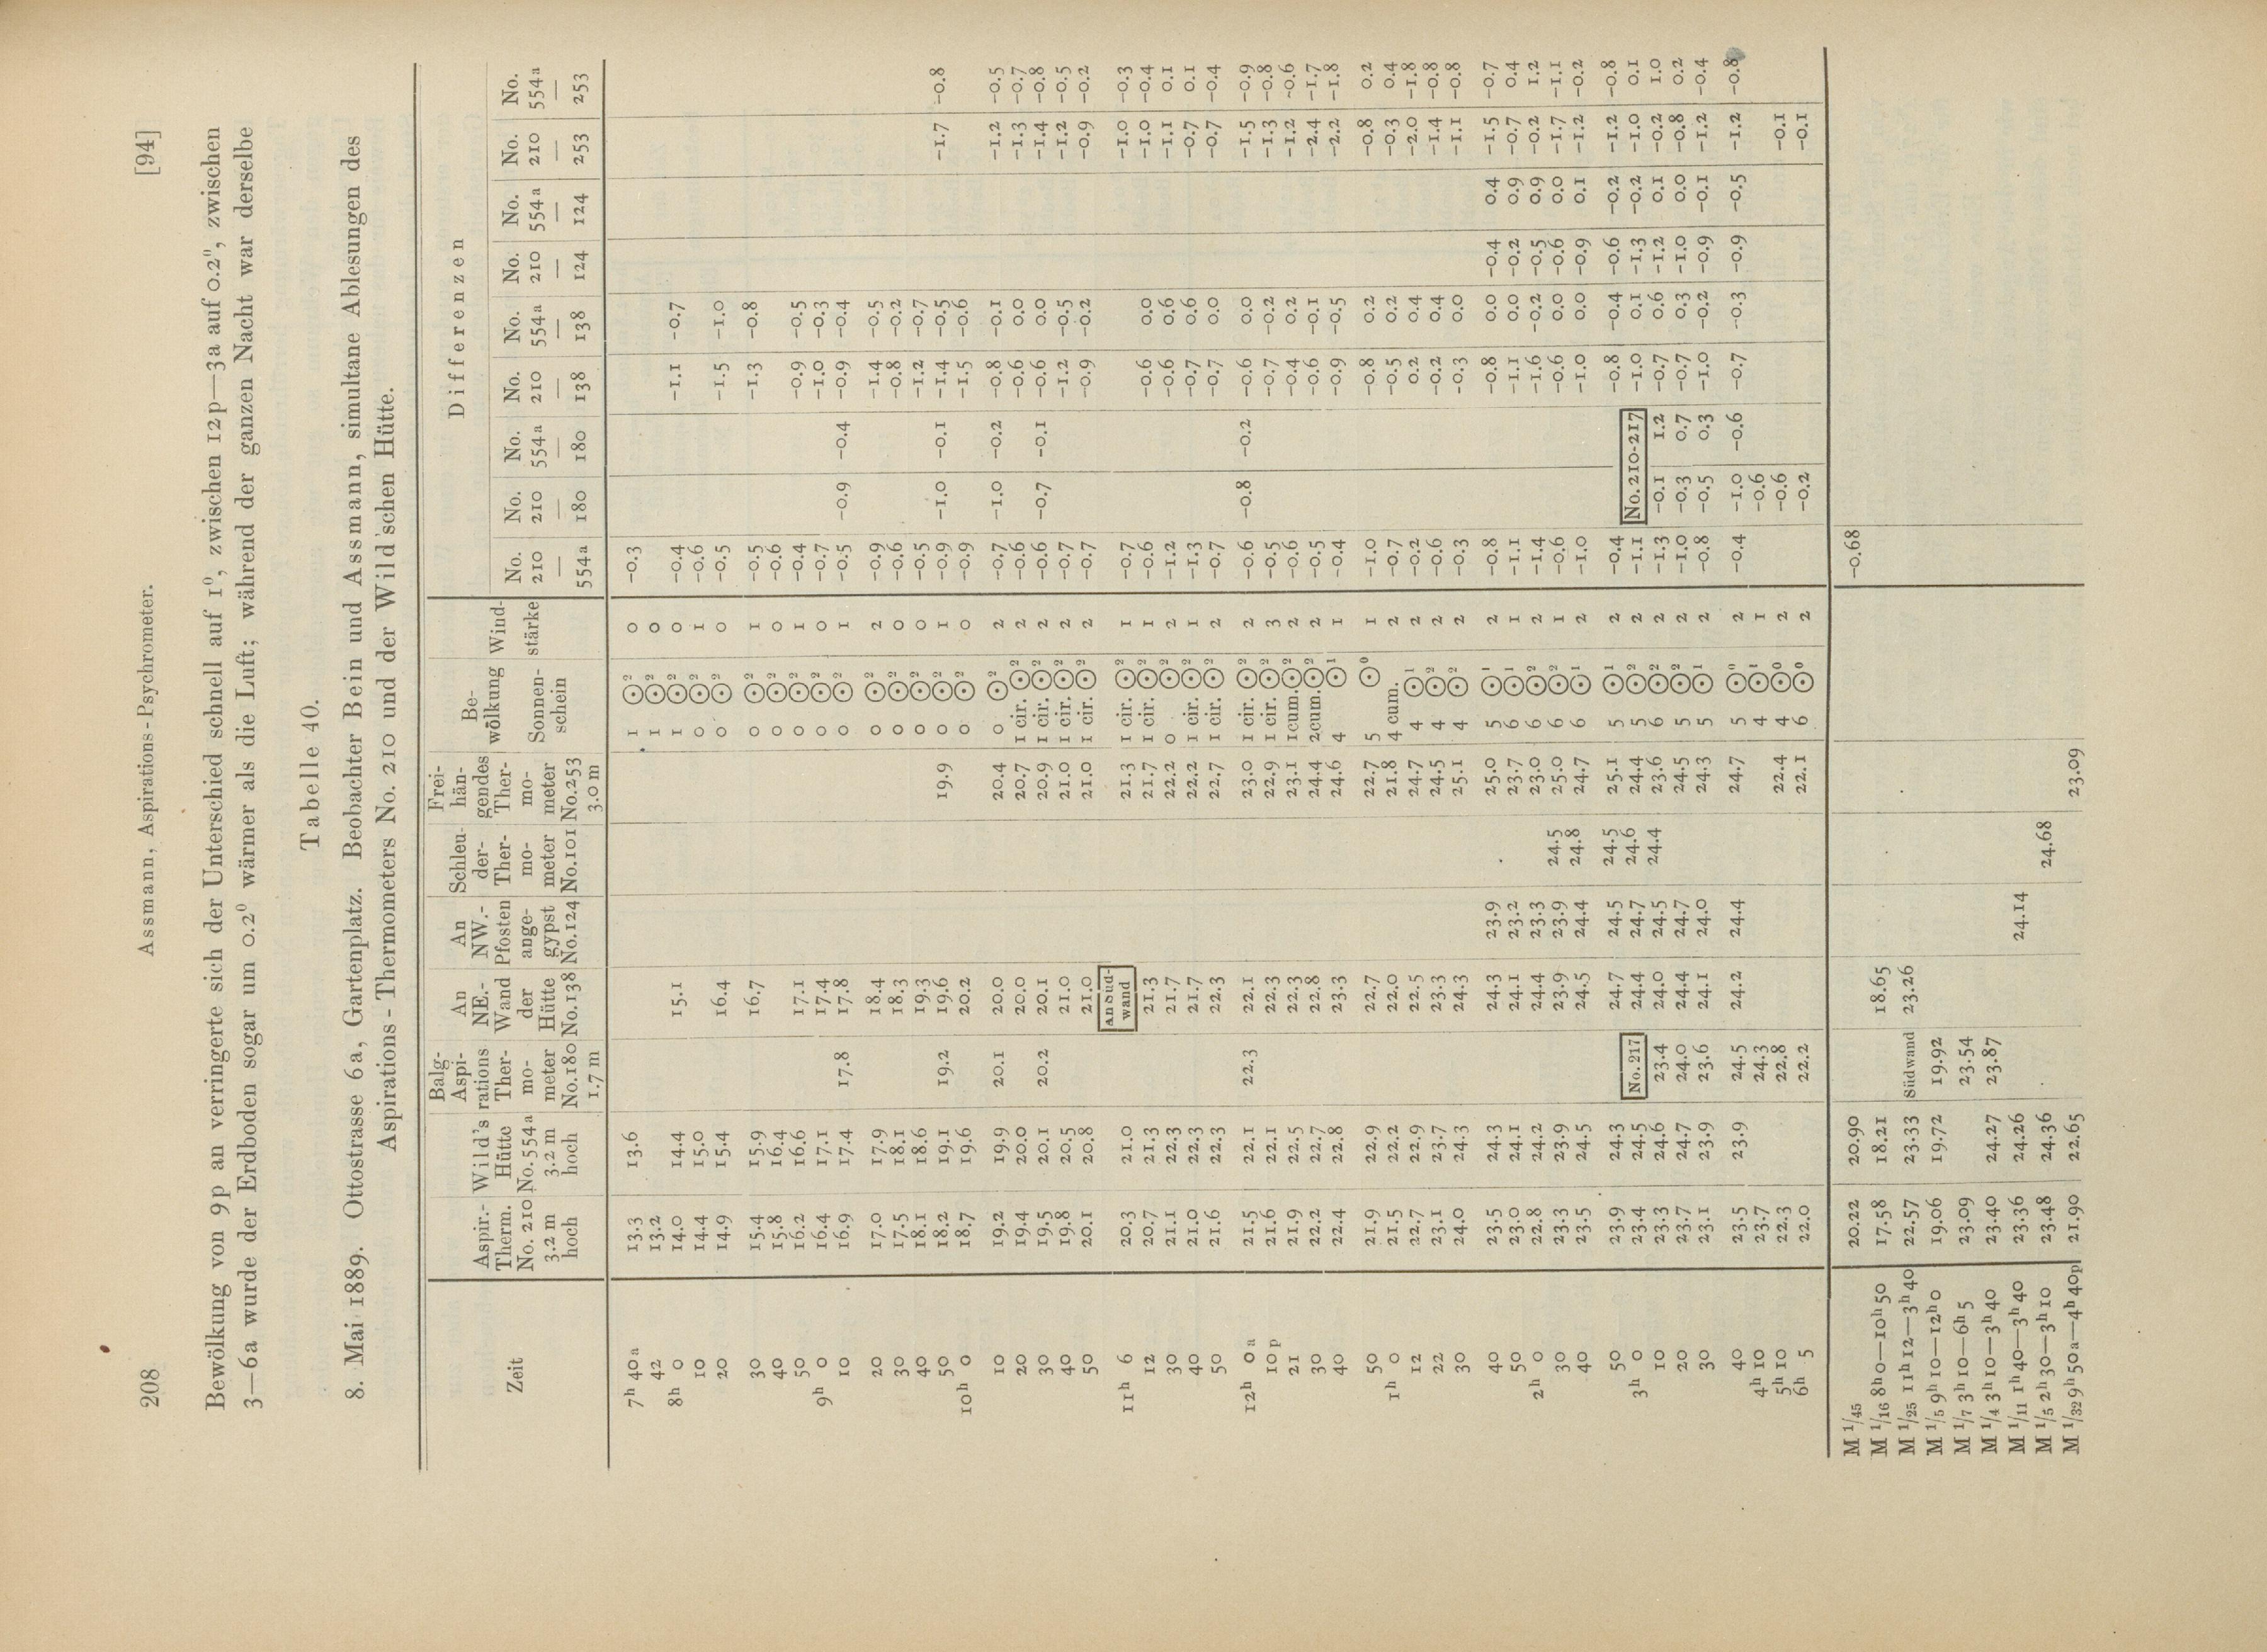 208 Assmann, Aspirations-Psychrometer. [94]
Bewölkung von 9p an verringerte sich der Unterschied schnell auf 1⁰, zwischen 12p—3a auf 0.2", zwischen
3—6a wurde der Erdboden sogar um 0.2⁰ wärmer als die Luft; während der ganzen Nacht war derselbe
Tabelle 40.
8. Mai 1889. Ottostrasse 6a, Gartenplatz. Beobachter Bein und Assmann, simultane Ablesungen des
Aspirations-Thermometers No. 210 und der Wild'schen Hütte.
Zeit
Aspir.-
Therm.
No. 210
3.2 m
hoch
Wild's
Hütte
No. 554a
3.2 m
hoch
Balg-
Aspi-
rations
Ther-
mo-
meter
No. 180
1.7 m
An
NE.-
Wand
der
Hütte
No. 138
An
NW.-
Pfosten
ange-
gypst
No. 124
Schleu-
der-
Ther-
mo-
meter
No. 101
Frei-
hän-
gendes
Ther-
mo-
meter
No. 253
3.0 m
Be-
wölkung
Sonnen-
schein
Wind-
stärke
Differenzen
No. 210 — 554a
No. 210 — 180
No. 554a — 180
No. 210 — 138
No. 554a — 138
No. 210 — 124
No. 554a — 124
No. 210 — 253
No. 554a — 253
7h 40a 13.3 13.6 1 ⊙² 0 -0.3
42 13.2 1 ⊙² 0
8h 0 14.0 14.4 15.1 1 ⊙² 0 -0.4 -1.1 -0.7
10 14.4 15.0 0 ⊙² 1 -0.6
20 14.9 15.4 16.4 0 ⊙² 0 -0.5 -1.5 -1.0
30 15.4 15.9 16.7 0 ⊙² 1 -0.5 -1.3 -0.8
40 15.8 16.4 0 ⊙² 0 -0.6
50 16.2 16.6 17.1 0 ⊙² 1 -0.4 -0.9 -0.5
9h 0 16.4 17.1 17.4 0 ⊙² 0 -0.7 -1.0 -0.3
10 16.9 17.4 17.8 17.8 0 ⊙² 1 -0.5 -0.9 -0.4 -0.9 -0.4
20 17.0 17.9 18.4 0 ⊙² 2 -0.9 -1.4 -0.5
30 17.5 18.1 18.3 0 ⊙² 0 -0.6 -0.8 -0.2
40 18.1 18.6 19.3 0 ⊙² 0 -0.5 -1.2 -0.7
50 18.2 19.1 19.2 19.6 19.9 0 ⊙² 1 -0.9 -1.0 -0.1 -1.4 -0.5 -1.7 -0.8
10h 0 18.7 19.6 20.2 0 ⊙² 0 -0.9 -1.5 -0.6
10 19.2 19.9 20.1 20.0 20.4 0 ⊙² 2 -0.7 -1.0 -0.2 -0.8 -0.1 -1.2 -0.5
20 19.4 20.0 20.0 20.7 1 cir. ⊙² 2 -0.6 -0.6 0.0 -1.3 -0.7
30 19.5 20.1 20.2 20.1 20.9 1 cir. ⊙² 2 -0.6 -0.7 -0.1 -0.6 0.0 -1.4 -0.8
40 19.8 20.5 21.0 21.0 1 cir. ⊙² 2 -0.7 -1.2 -0.5 -1.2 -0.5
50 20.1 20.8 21.0 21.0 1 cir. ⊙² 2 -0.7 -0.9 -0.2 -0.9 -0.2
11h 6 20.3 21.0 An Südwand 21.3 1 cir. ⊙² 1 -0.7 -1.0 -0.3
12 20.7 21.3 21.3 21.7 1 cir. ⊙² 1 -0.6 -0.6 0.0 -1.0 -0.4
30 21.1 22.3 21.7 22.2 0 ⊙² 2 -1.2 -0.6 0.6 -1.1 0.1
40 21.0 22.3 21.7 22.2 1 cir. ⊙² 1 -1.3 -0.7 0.6 -0.7 0.1
50 21.6 22.3 22.3 22.7 1 cir. ⊙² 2 -0.7 -0.7 0.0 -0.7 -0.4
12h 0a 21.5 22.1 22.3 22.1 23.0 1 cir. ⊙² 2 -0.6 -0.8 -0.2 -0.6 0.0 -1.5 -0.9
10p 21.6 22.1 22.3 22.9 1 cir. ⊙² 3 -0.5 -0.7 -0.2 -1.3 -0.8
21 21.9 22.5 22.3 23.1 1cum. ⊙² 2 -0.6 -0.4 0.2 -1.2 -0.6
30 22.2 22.7 22.8 24.4 2cum. ⊙² 2 -0.5 -0.6 -0.1 -2.4 -1.7
40 22.4 22.8 23.3 24.6 4 ⊙¹ 1 -0.4 -0.9 -0.5 -2.2 -1.8
50 21.9 22.9 22.7 22.7 5 ⊙⁰ 1 -1.0 -0.8 0.2 -0.8 0.2
1h 0 21.5 22.2 22.0 21.8 4 cum. 2 -0.7 -0.5 0.2 -0.3 0.4
12 22.7 22.9 22.5 24.7 4 ⊙¹ 2 -0.2 0.2 0.4 -2.0 -1.8
22 23.1 23.7 23.3 24.5 4 ⊙² 2 -0.6 -0.2 0.4 -1.4 -0.8
30 24.0 24.3 24.3 25.1 4 ⊙² 2 -0.3 -0.3 0.0 -1.1 -0.8
40 23.5 24.3 24.3 23.9 25.0 5 ⊙¹ 2 -0.8 -0.8 0.0 -0.4 0.4 -1.5 -0.7
50 23.0 24.1 24.1 23.2 23.7 6 ⊙¹ 1 -1.1 -1.1 0.0 -0.2 0.9 -0.7 0.4
2h 0 22.8 24.2 24.4 23.3 23.0 6 ⊙² 2 -1.4 -1.6 -0.2 -0.5 0.9 -0.2 1.2
30 23.3 23.9 23.9 23.9 24.5 25.0 6 ⊙² 1 -0.6 -0.6 0.0 -0.6 0.0 -1.7 -1.1
40 23.5 24.5 24.5 24.4 24.8 24.7 6 ⊙¹ 2 -1.0 -1.0 0.0 -0.9 0.1 -1.2 -0.2
50 23.9 24.3 24.7 24.5 24.5 25.1 5 ⊙¹ 2 -0.4 -0.8 -0.4 -0.6 -0.2 -1.2 -0.8
3h 0 23.4 24.5 No. 217 24.4 24.7 24.6 24.4 5 ⊙² 2 -1.1 No. 210-217 -1.0 0.1 -1.3 -0.2 -1.0 0.1
10 23.3 24.6 23.4 24.0 24.5 24.4 23.6 6 ⊙² 2 -1.3 -0.1 1.2 -0.7 0.6 -1.2 0.1 -0.2 1.0
20 23.7 24.7 24.0 24.4 24.7 24.5 5 ⊙² 2 -1.0 -0.3 0.7 -0.7 0.3 -1.0 0.0 -0.8 0.2
30 23.1 23.9 23.6 24.1 24.0 24.3 5 ⊙¹ 2 -0.8 -0.5 0.3 -1.0 -0.2 -0.9 -0.1 -1.2 -0.4
40 23.5 23.9 24.5 24.2 24.4 24.7 5 ⊙⁰ 2 -0.4 -1.0 -0.6 -0.7 -0.3 -0.9 -0.5 -1.2 -0.8
4h 10 23.7 24.3 4 ⊙¹ 1 -0.6
5h 10 22.3 22.8 22.4 4 ⊙⁰ 2 -0.6 -0.1
6h 5 22.0 22.2 22.1 6 ⊙⁰ 2 -0.2 -0.1
M ¹/45 20.22 20.90 -0.68
M ¹/16 8h 0—10h 50 17.58 18.21 18.65
M ¹/25 11h 12—3h 40 22.57 23.33 Südwand 23.26
M ¹/5 9h 10—12h 0 19.06 19.72 19.92
M ¹/7 3h 10—6h 5 23.09 23.54
M ¹/4 3h 10—3h 40 23.40 24.27 23.87
M ¹/11 1h 40—3h 40 23.36 24.26 24.14
M ¹/5 2h 30—3h 10 23.48 24.36 24.68
M ¹/32 9h 50a—4h 40p 21.90 22.65 23.09